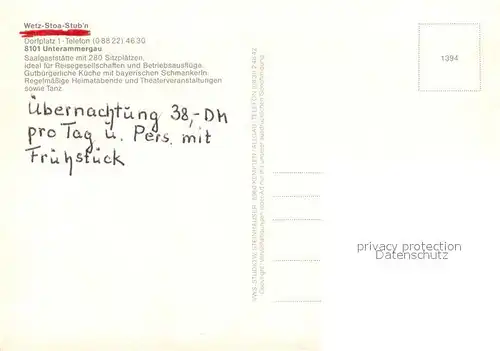 Wetz-Stoa-Stub'n
Dorfplatz 1 · Telefon (0 88 22) 46 30
8101 Unterammergau
Saalgaststätte mit 280 Sitzplätzen,
ideal für Reisegesellschaften und Betriebsausflüge.
Gutbürgerliche Küche mit bayerischen Schmankerln.
Regelmäßige Heimatabende und Theaterveranstaltungen
sowie Tanz.
Übernachtung 38,- DM
pro Tag u. Pers. mit
Frühstück
1394
privacy protection
Datenschutz